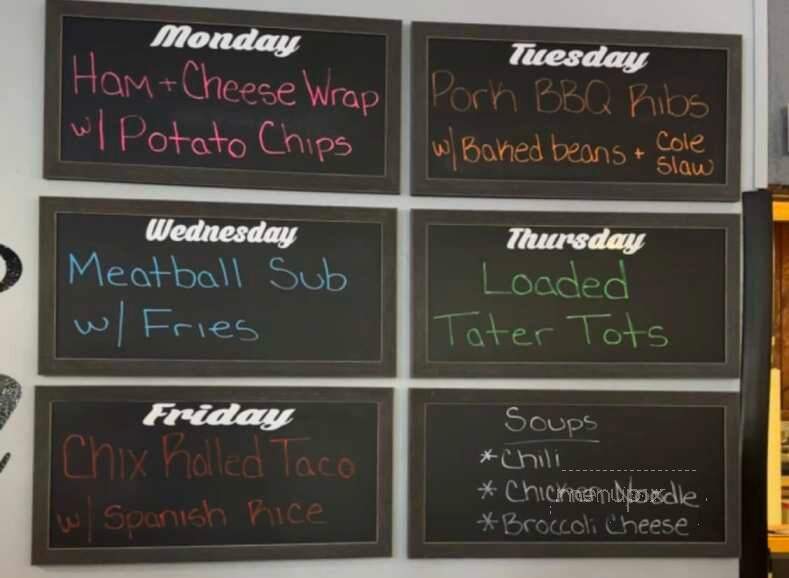 Monday
Ham + Cheese Wrap
w/ Potato Chips
Tuesday
Pork BBQ Ribs
w/ Baked beans + Cole Slaw
Wednesday
Meatball Sub
w/ Fries
Thursday
Loaded
Tater Tots
Friday
Chix Rolled Taco
w/ Spanish Rice
Soups
* Chili
* Chicken Noodle
* Broccoli Cheese